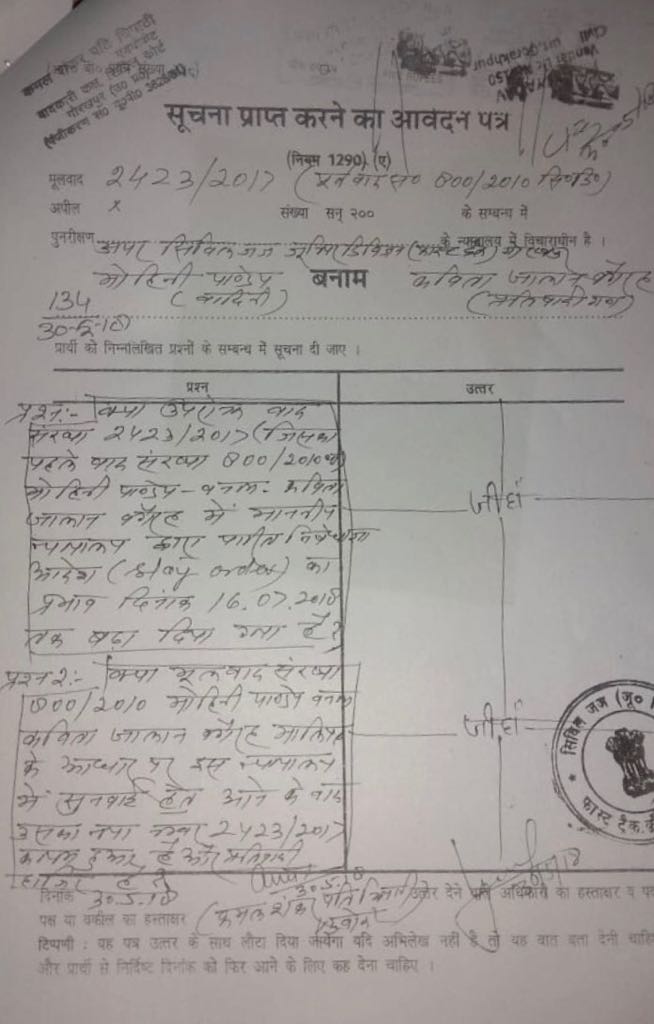 कमल शंकर पति त्रिपाठी
गोरखपुर (उ० प्र०)
सूचना प्राप्त करने का आवदन पत्र
(नियम 1290) (ए)
मूलवाद 2423/2017 (मूल वाद सं० 800/2010 सि०डि०)
अपील x संख्या सन् २०० के सम्बन्ध में
पुनरीक्षण अपर सिविल जज जूनियर डिविजन के न्यायालय में विचाराधीन है ।
मोहिनी पाण्डेय बनाम कविता जालान वगैरह
(वादिनी) (प्रतिवादीगण)
134
30-5-18
प्रार्थी को निम्नलिखित प्रश्नों के सम्बन्ध में सूचना दी जाए ।
प्रश्न उत्तर
प्रश्न:- क्या उपरोक्त वाद
संख्या 2423/2017 (जिसका
पहले वाद संख्या 800/2010 था)
मोहिनी पाण्डेय - बनाम - कविता
जालान वगैरह में माननीय
न्यायालय द्वारा पारित निषेधाज्ञा
आदेश (stay order) का
प्रभाव दिनांक 16.07.2018
तक बढ़ा दिया गया है?
जी हाँ
प्रश्न 2:- क्या मूलवाद संख्या
800/2010 मोहिनी पाण्डेय बनाम
कविता जालान वगैरह
के आधार पर इस न्यायालय
में सुनवाई हेतु आने के बाद
उसका नया नम्बर 2423/2017
कायम हुआ है और प्रतिवादी
हाजिर है?
जी हाँ
सिविल जज (जू०
फास्ट ट्रैक
दिनांक 30.5.18
30.5.18
उत्तर देने वाले अधिकारी का हस्ताक्षर व
पक्ष या वकील का हस्ताक्षर (कमल शंकर पति त्रिपाठी)
एडवोकेट
टिप्पणी : यह पत्र उत्तर के साथ लौटा दिया जायेगा यदि अभिलेख नहीं है तो यह बात बता देनी चाहि
और प्रार्थी से निर्दिष्ट दिनांक को फिर आने के लिए कह देना चाहिए ।